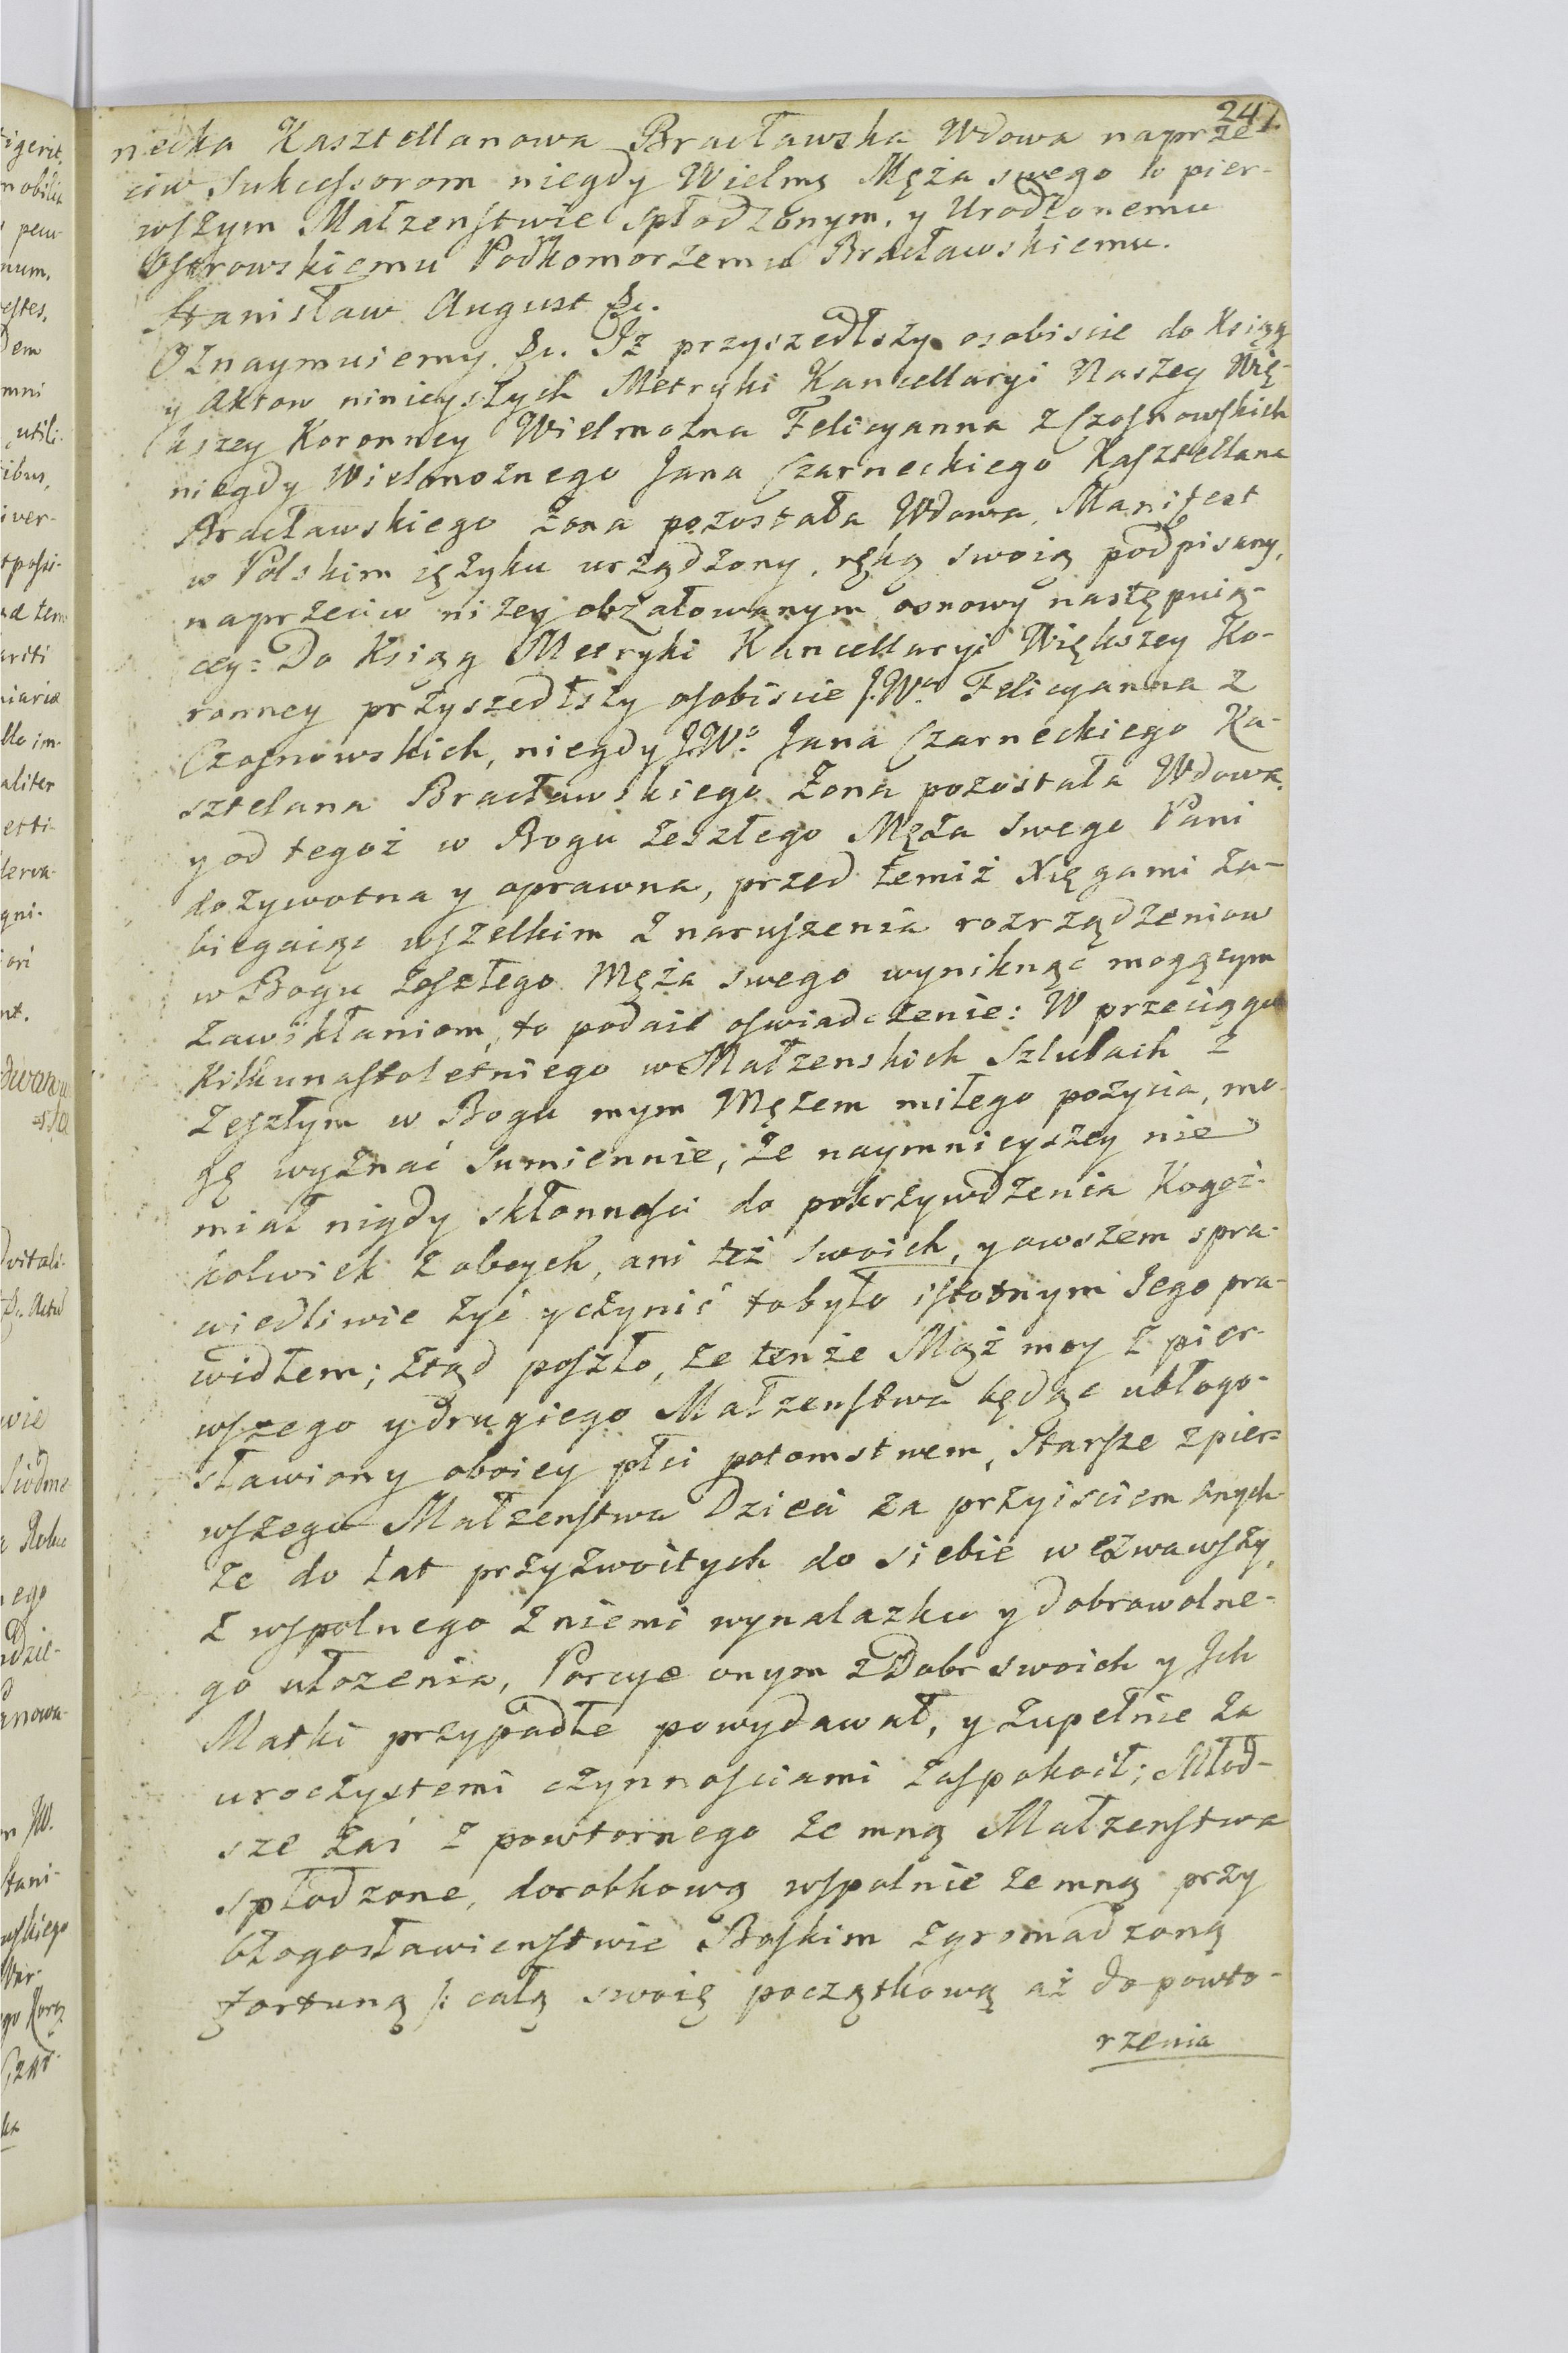 247.
necka Kasztellanowa Bracławska Wdowa naprze
ciw Sukcessorom niegdy Wielmę Męża swego w pier-
wszym Małzenstwie spłodzonym, y Urodzonemu
Ostrowskiemu Podkomorzemu Bracławskiemu.
Stanisław August &c.
Oznaymuiemy &c. Iż przyszedłszy osobiscie do Xiąg
y Aktow ninieyszych Metryki Kancellaryi Naszey Wię-
kszey Koronney Wielmozna Felicyanna z Czosnowskich
niegdy Wielmoznego Jana Czarneckiego Kasztellana
Bracławskiego żona pozostała Wdowa, Manifest
w Polskim ięzyku urządzony, ręką swoią podpisany,
naprzeciw nizey obżałowanym osnowy następuią-
cey: Do Ksiąg Metryki Kancellaryi Większey Ko-
ronney przyszedłszy osobiscie J.Wa. Felicyanna z
Czosnowskich, niegdy J.Wo. Jana Czarneckiego Ka-
sztelana Bracławskiego Żona pozostała Wdowa,
y od tegoż w Bogu zeszłego Męża swego Pani
dozywotna y oprawna, przed temiż Xięgami za-
biegaiąc wszelkim z naruszenia rozrządzeniow
w Bogu zeszłego Męża swego wyniknąć mogącym
zawikłaniom, to podaie oswiadczenie: W przeciągu
Kilkunastoletniego w Małzenskich Szlubach z
zeszłym w Bogu mym Mężem miłego pozycia, mo-
gę wyznać sumiennie, że naymnieyszey nie
miał nigdy skłonnosci do pokrzywdzenia Kogoż-
kolwiek z obcych, ani też swoich, y owszem spra-
wiedliwie żyć y czynić to było istotnym Jego pra-
widłem; ztąd poszło, że tenże Mąż moy z pier-
wszego y drugiego Małzenstwa będąc ubłogo-
sławiony oboiey płci potomstwem, Starsze z pier-
wszego Małzenstwa Dzieci za przyisciem onych-
że do lat przyzwoitych do siebie wezwawszy,
z wspolnego z niemi wynalazku y dobrowolne-
go ułozenia, Porcye onym z Dobr swoich y Ich
Matki przypadłe powydawał, y zupełnie za
uroczystemi czynnosciami zaspokoił; Młod-
sze zaś z powtornego ze mną Małzenstwa
spłodzone, dorobkową wspolnie ze mną przy
błogosławienstwie Boskim zgromadzoną
fortuną /: całą swoię początkową aż do powto-
rzenia